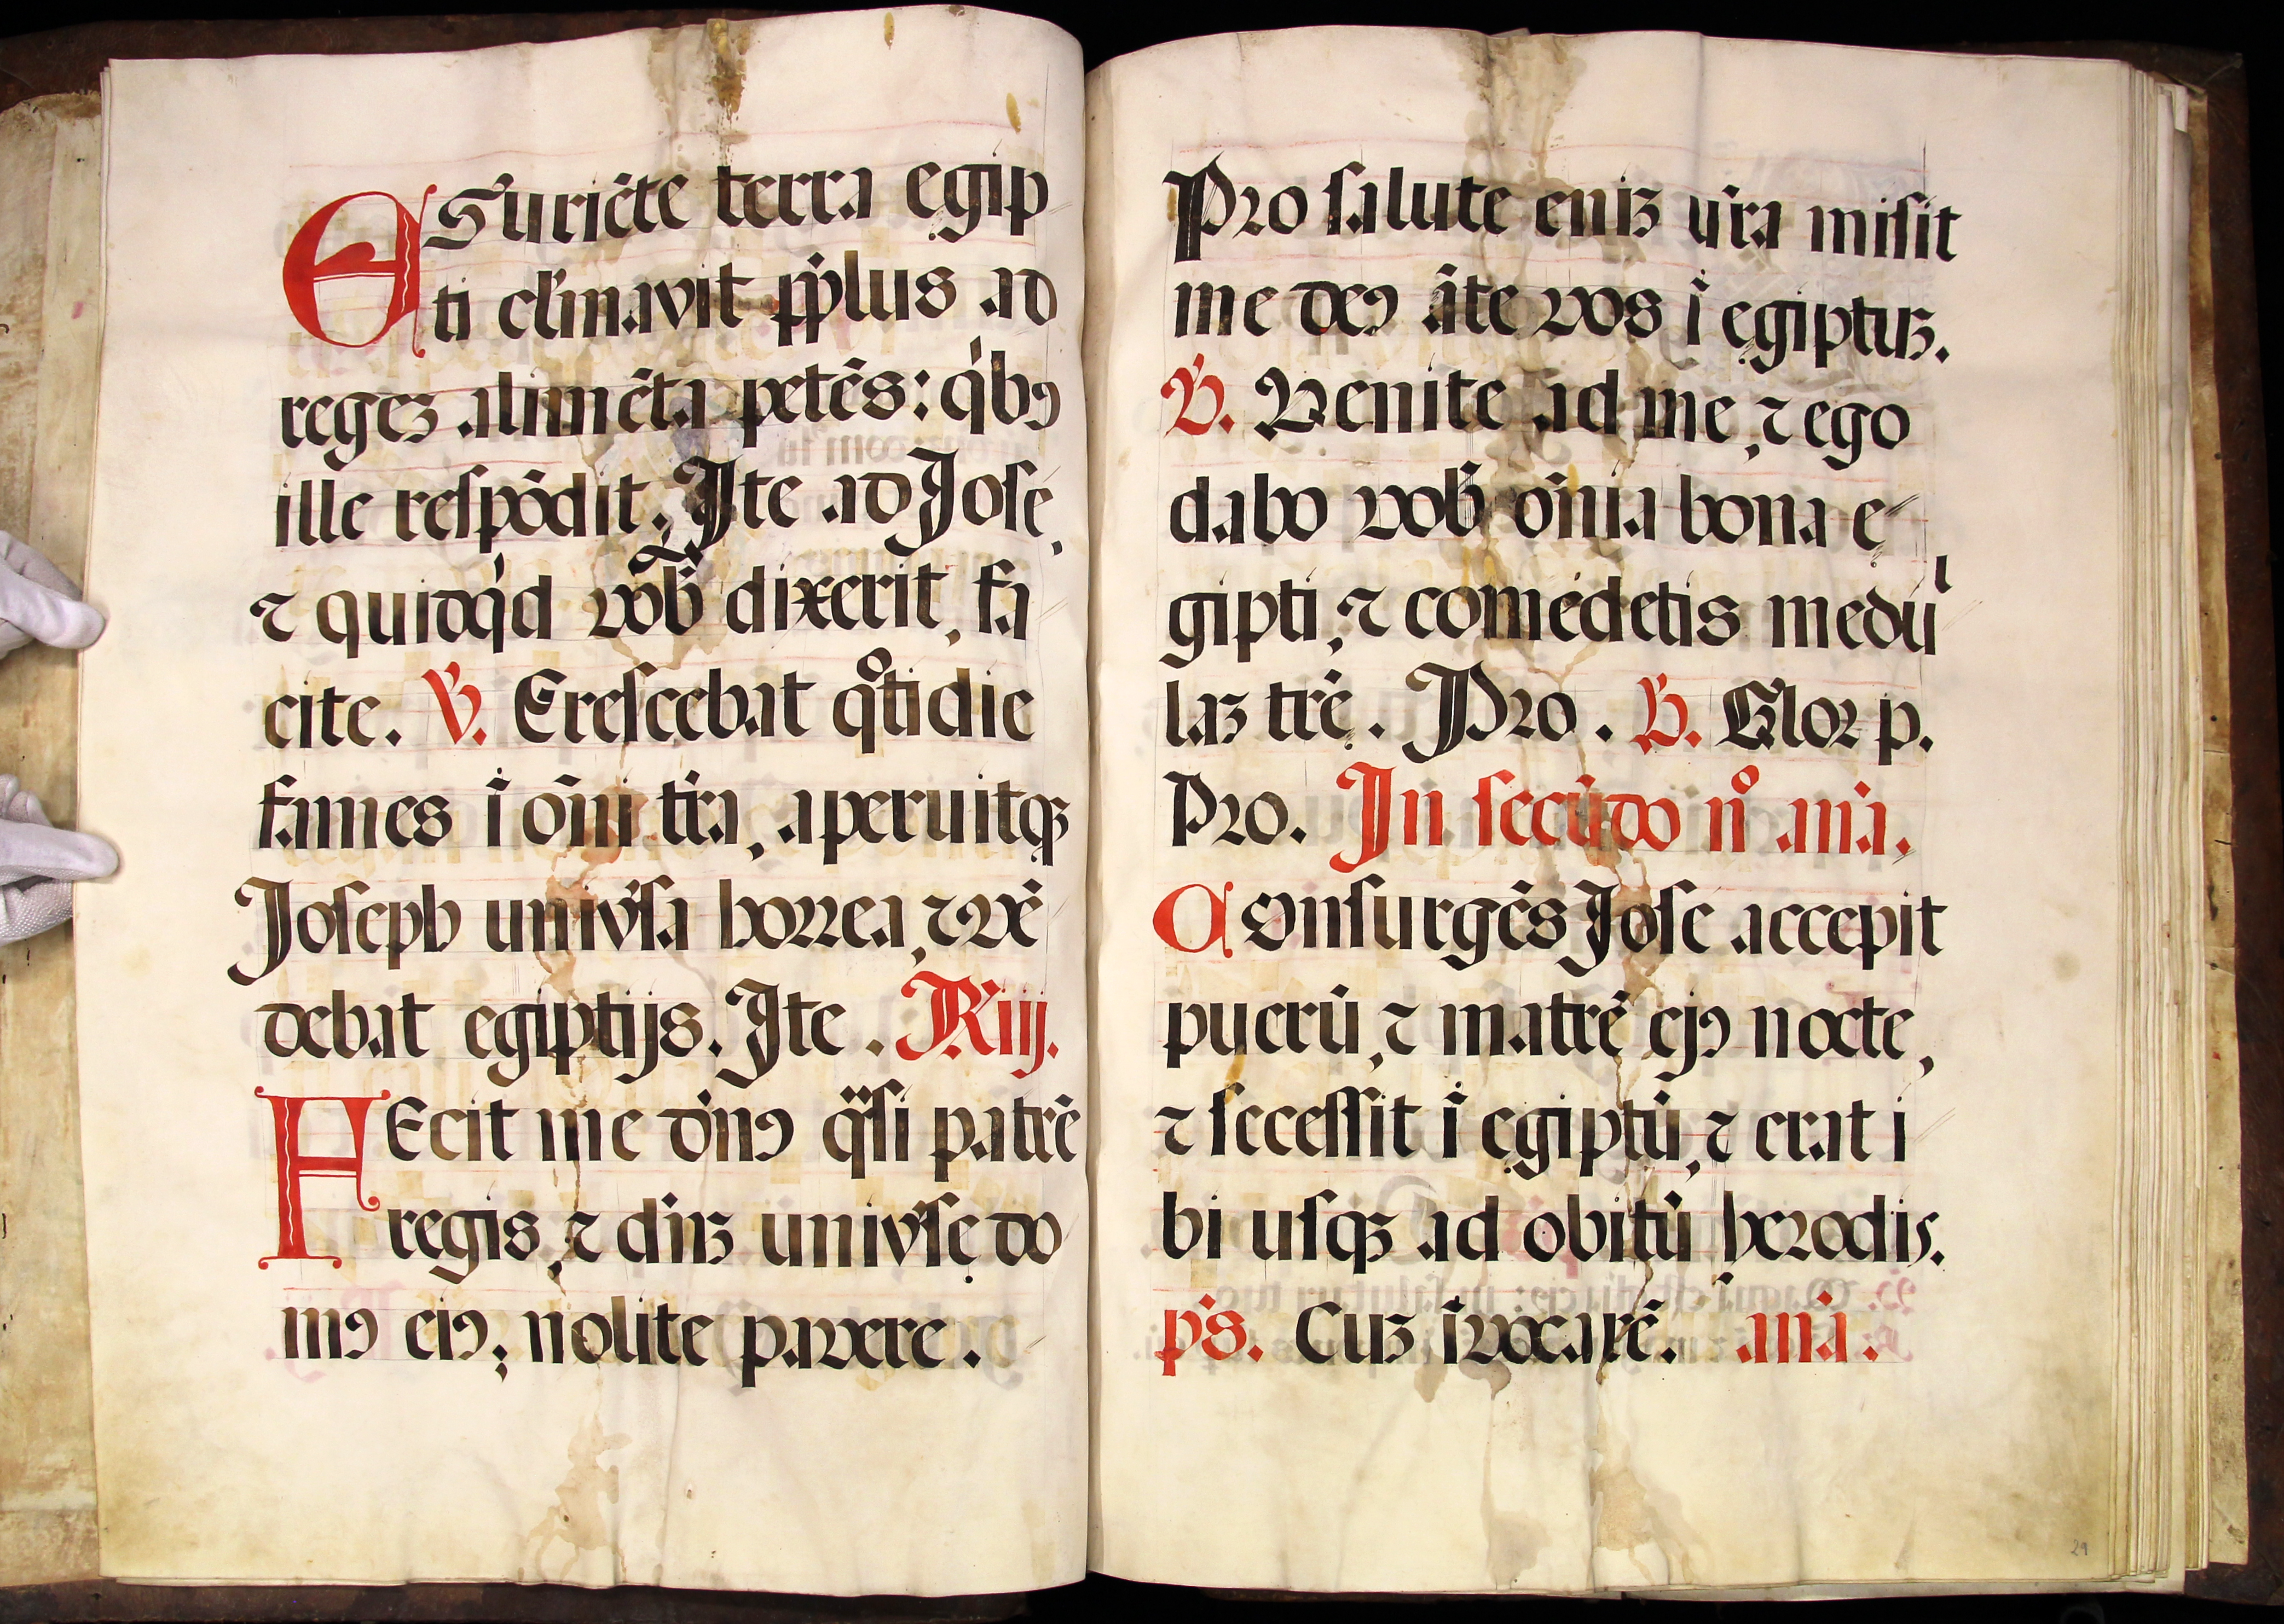 ESuriēte terra egip
ti clāmavit pp̄lus ad
regeʒ alimēta petēs: qⁱbꝰ
ille respōdit. Ite ad Jose,
⁊ quidqⁱd vob̄ dixerit, fa
cite. ℣. Crescebat qͦtidie
fames ī om̄i tr̄a, aperuitqꝫ
Joseph univ̄sa horrea, ⁊ vē
debat egiptijs. Ite. ℟ iij.
FEcit me dn̄ꝰ qᵃsi patrē
regis, ⁊ dn̄ʒ univ̄sę do
mꝰ eiꝰ; nolite pavere.
Pro salute eniʒ vr̄a misit
me deꝰ āte vos ī egiptuʒ.
℣. Venite ad me, ⁊ ego
dabo vob̄ om̄ia bona e-
gipti, ⁊ comedetis medūl
laʒ trē. Pro. ℣. Glor p.
Pro. In secūdo nͦ an̄a.
Consurgēs Jose accepit
puerū, ⁊ matrē ejꝰ nocte,
⁊ secessit ī egiptū, ⁊ erat i
bi usqꝫ ad obitū herodis.
ps̄. Cuʒ īvocarē. an̄a.
29